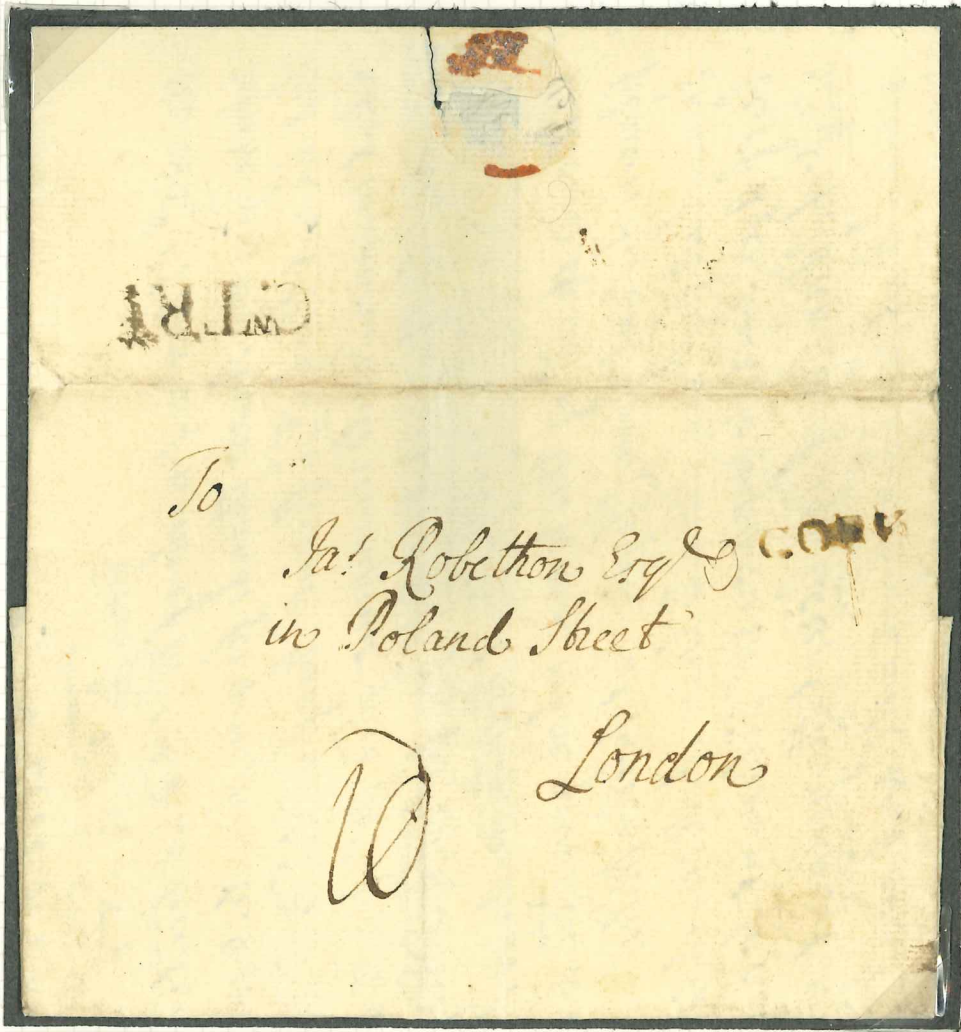 To
Jas. Robethon Esqr. CORK
in Poland Street
London
10